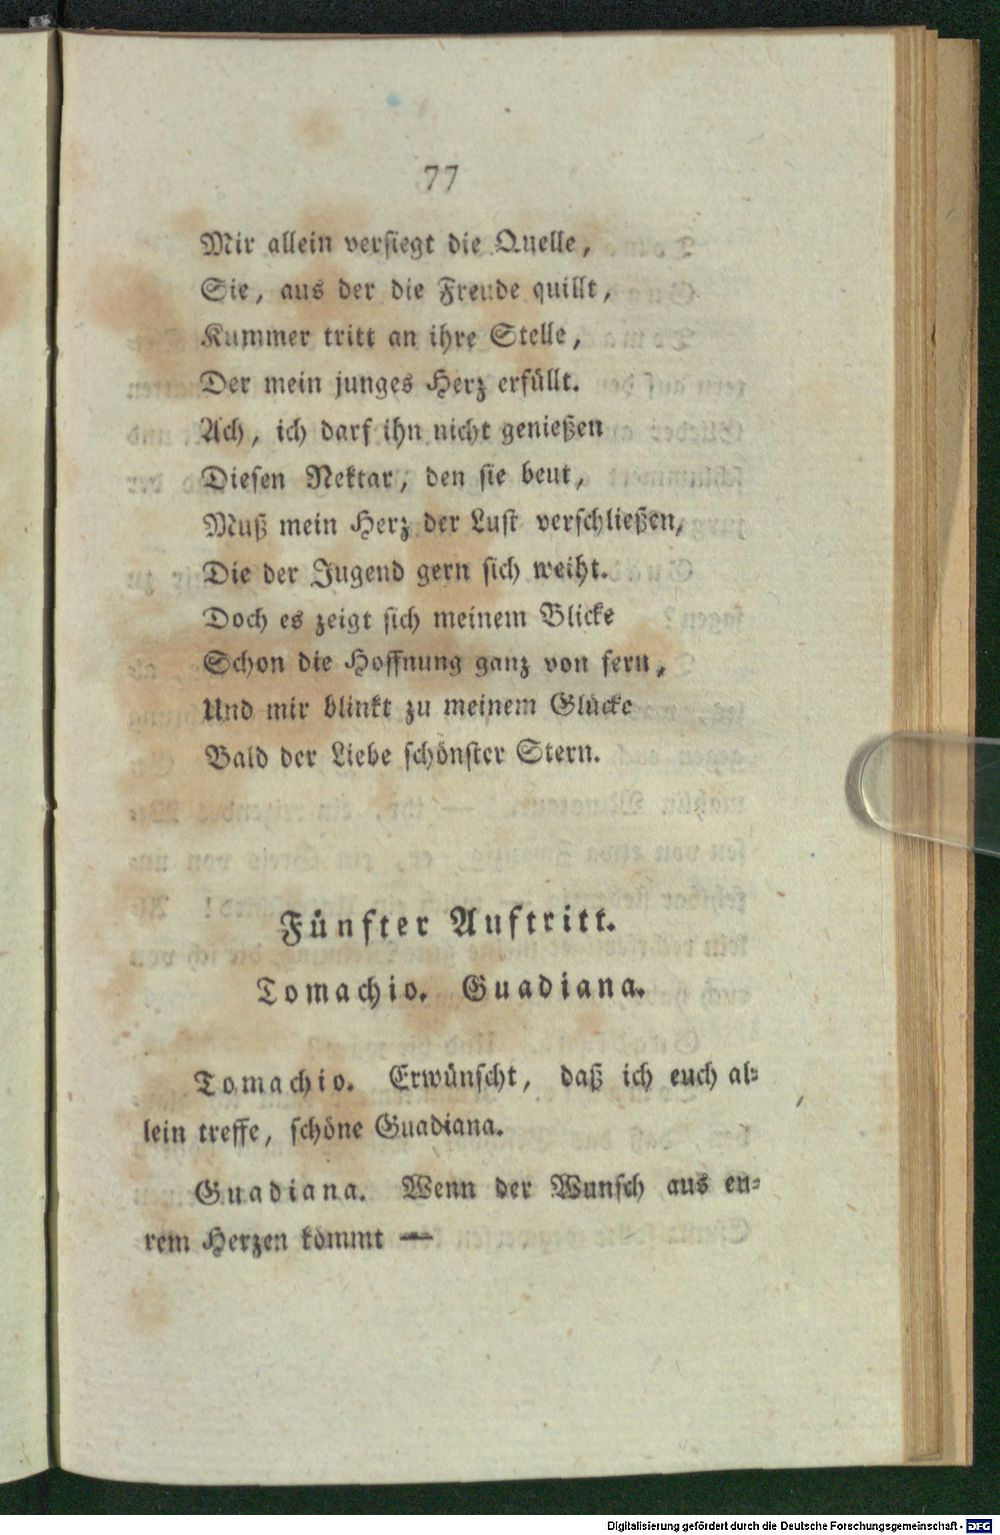 77
Mir allein versiegt die Quelle,
Sie, aus der die Freude quillt,
Kummer tritt an ihre Stelle,
Der mein junges Herz erfüllt.
Ach, ich darf ihn nicht genießen
Diesen Nektar, den sie beut,
Muß mein Herz der Lust verschließen,
Die der Jugend gern sich weiht.
Doch es zeigt sich meinem Blicke
Schon die Hoffnung ganz von fern,
Und mir blinkt zu meinem Glücke
Bald der Liebe schönster Stern.
Fünfter Auftritt.
Tomachio. Guadiana.
Tomachio. Erwünscht, daß ich euch al-
lein treffe, schöne Guadiana.
Guadiana. Wenn der Wunsch aus eu-
rem Herzen kömmt —
Digitalisierung gefördert durch die Deutsche Forschungsgemeinschaft - DFG